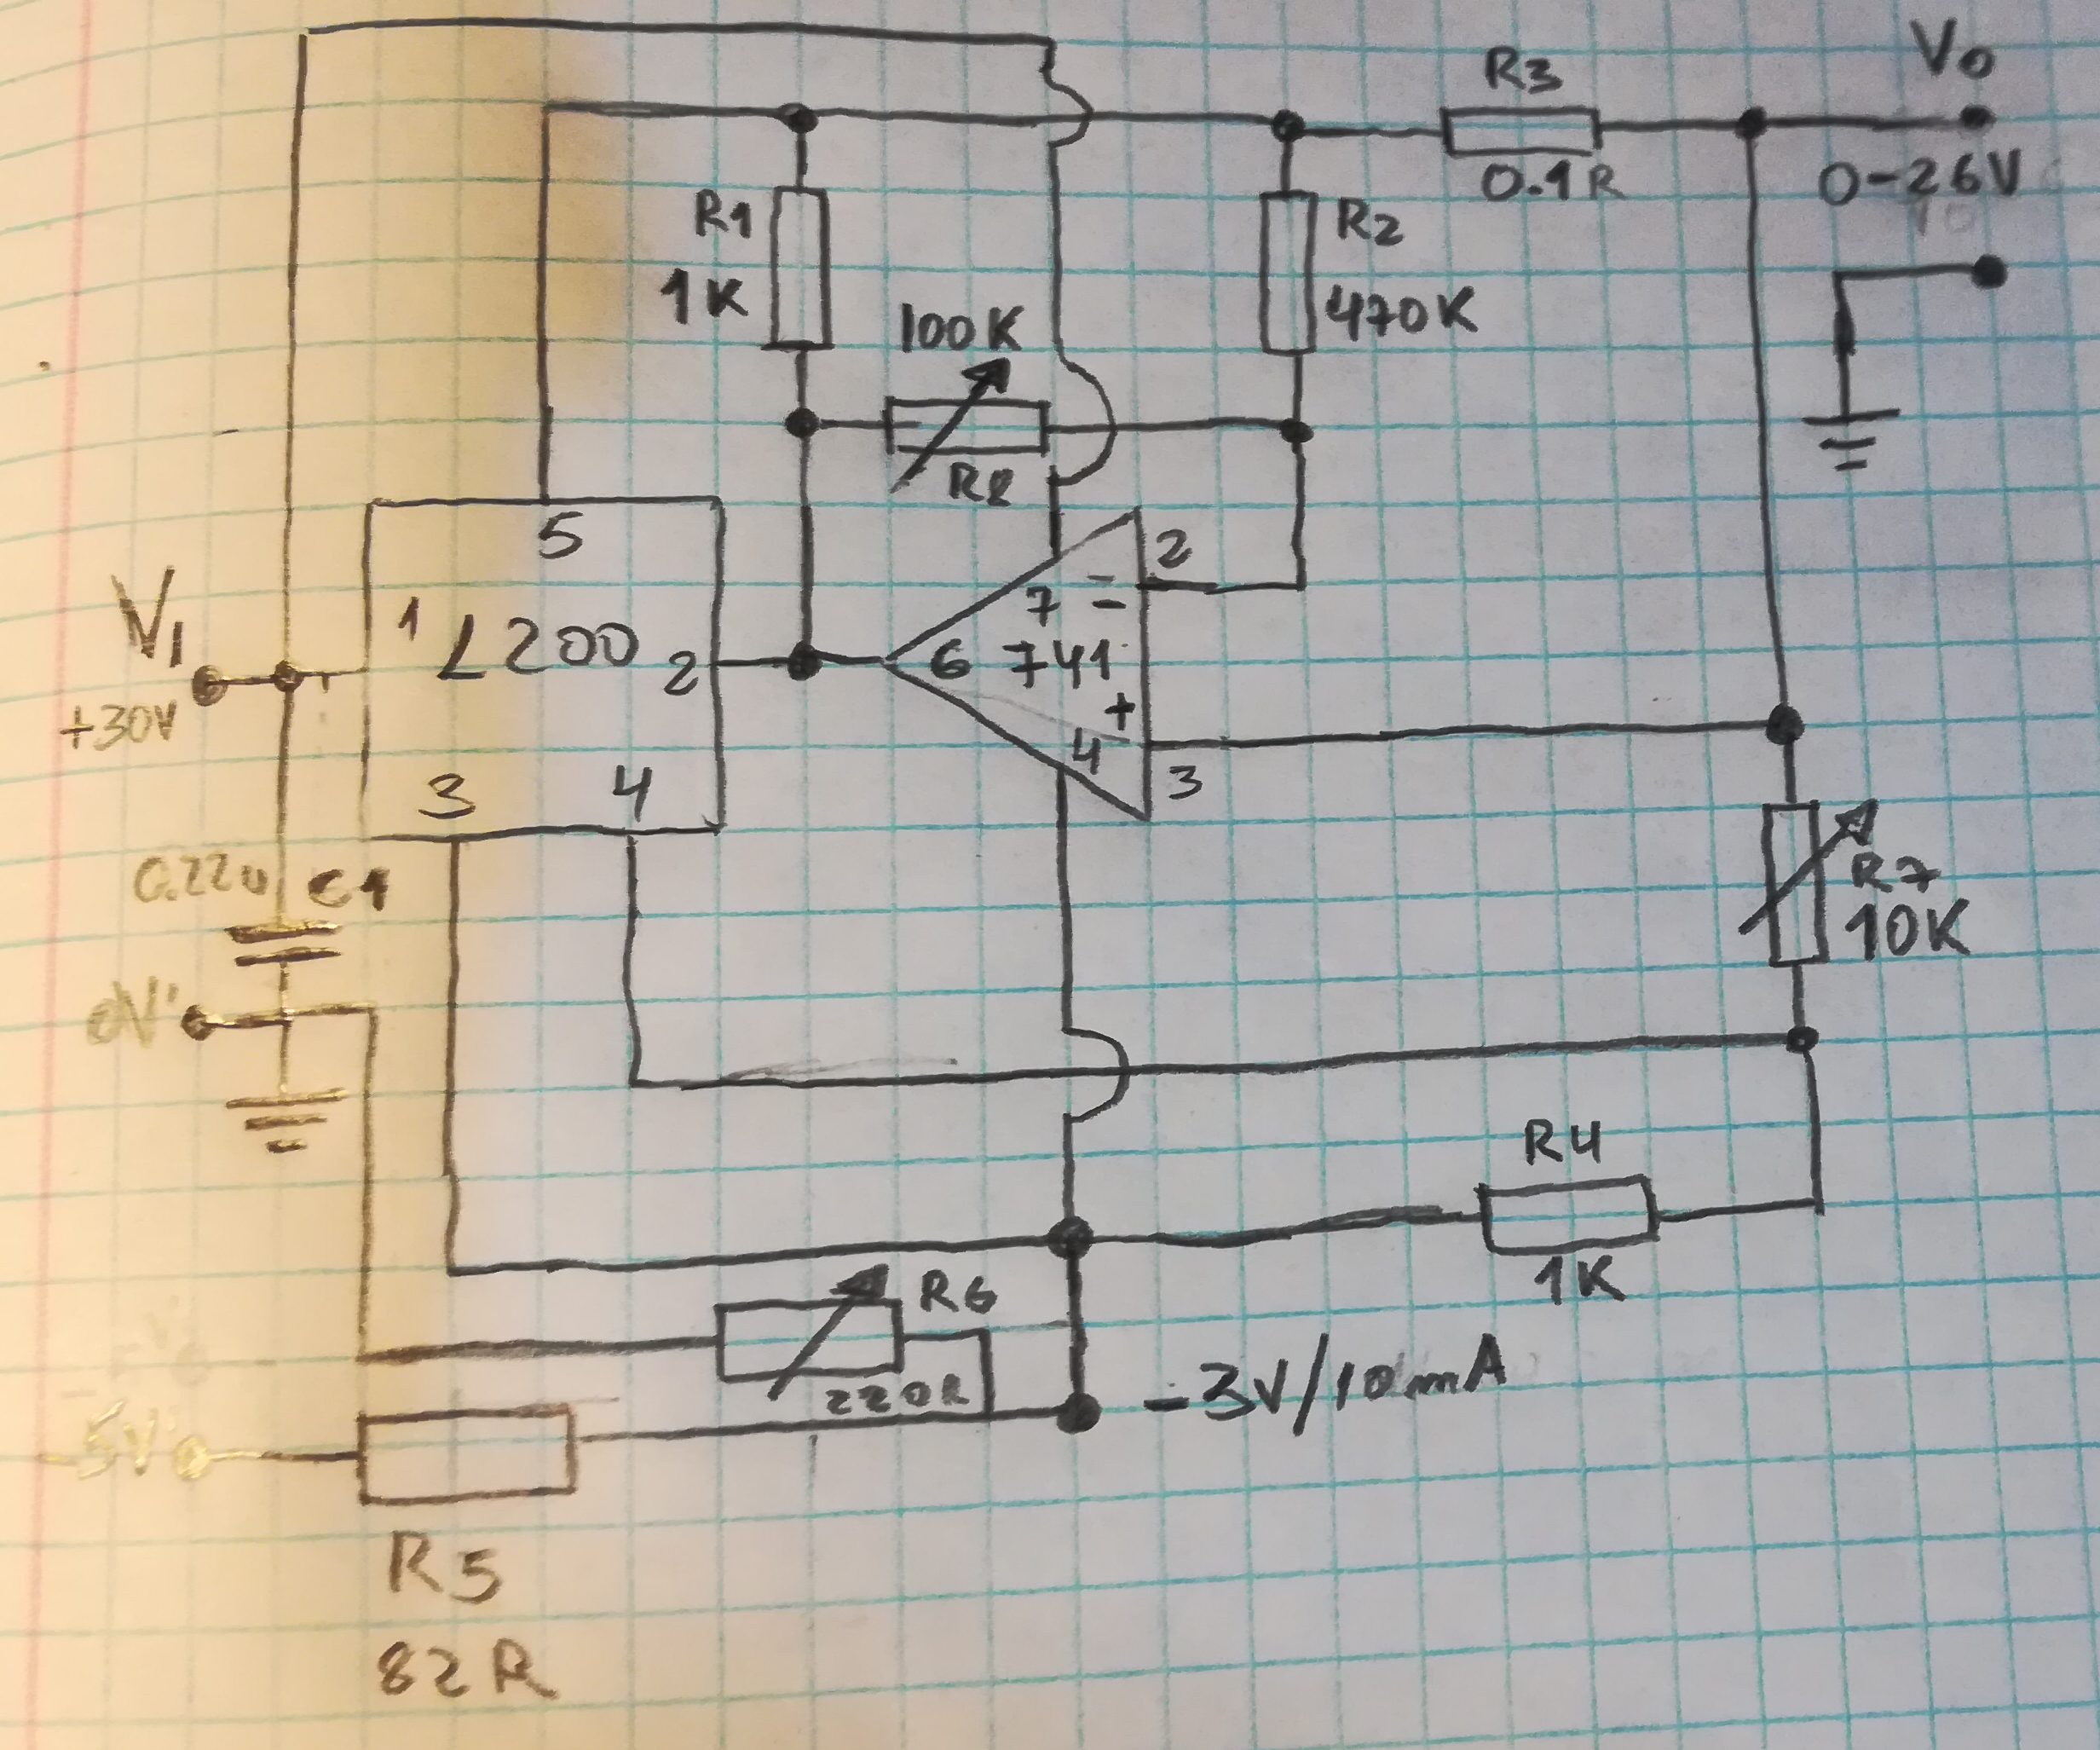 Vo
R3
0.1R
0-26V
R1
1K
R2
470K
100K
R8
5
1 L200 2
3 4
V1
+30V
2
7 -
6 741
+
4
3
0.22u C1
0V
R7
10K
R4
1K
R6
220R
-3V/10mA
-5V
R5
82R